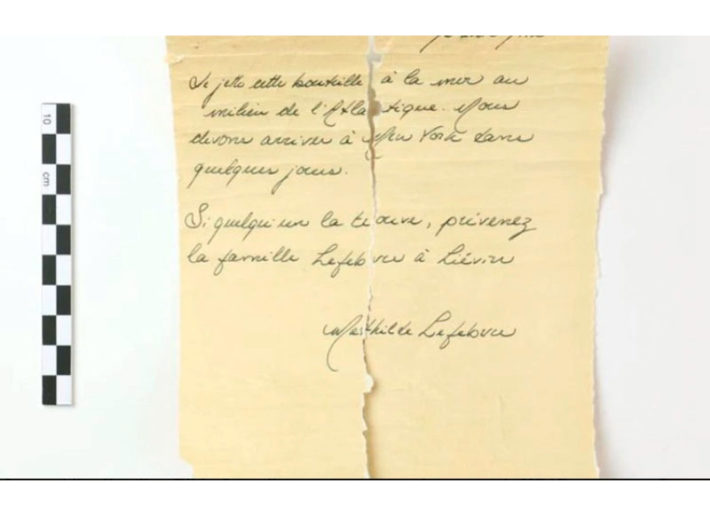 Je jette cette bouteille à la mer au
milieu de l'Atlantique. Nous
devons arriver à New York dans
quelques jours.
Si quelqu'un la trouve, prévenez
la famille Lefebvre à Liévin
Mathilde Lefebvre
10 cm